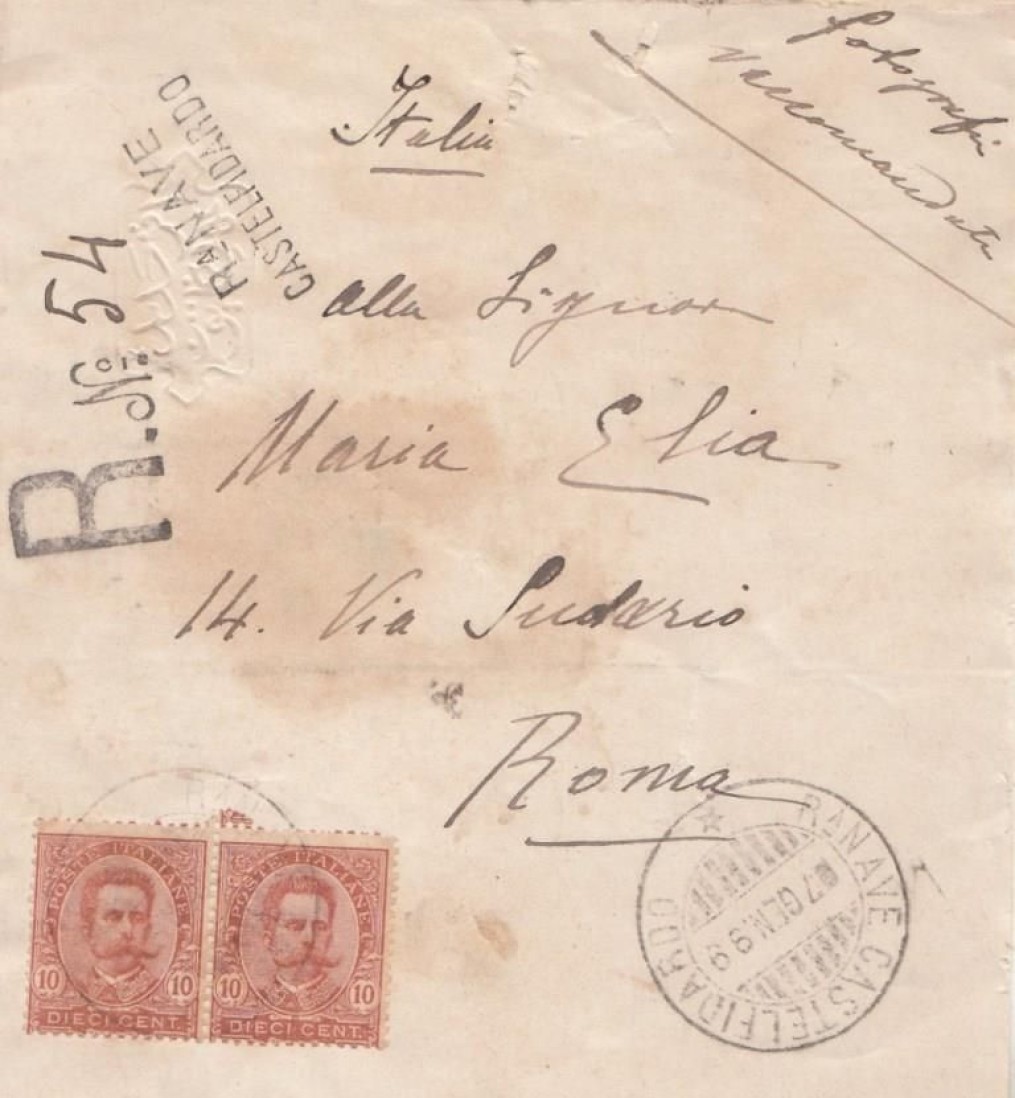 fotografie
raccomandate
Italia
RANAVE
CASTELFIDARDO
R. No 54
alla Signora
Maria Elia
14. Via Sudario
Roma
RAN AVE CASTELFIDARDO
7 GEN 99
POSTE ITALIANE
10 10
DIECI CENT.
POSTE ITALIANE
10 10
DIECI CENT.